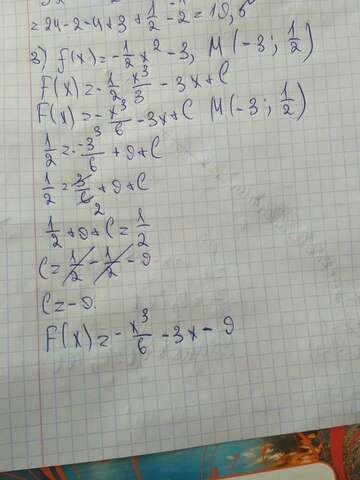 = 24 - 2 - 4 + 3 + 1/2 - 2 = 19,5
3) f(x) = -1/2 x² - 3, M(-3; 1/2)
F(x) = -1/2 · x³/3 - 3x + C
F(x) = -x³/6 - 3x + C M(-3; 1/2)
1/2 = -3³/6 + 9 + C
1/2 = 3/6 + 9 + C
2
1/2 + 9 + C = 1/2
C = 1/2 - 1/2 - 9
C = -9.
F(x) = -x³/6 - 3x - 9